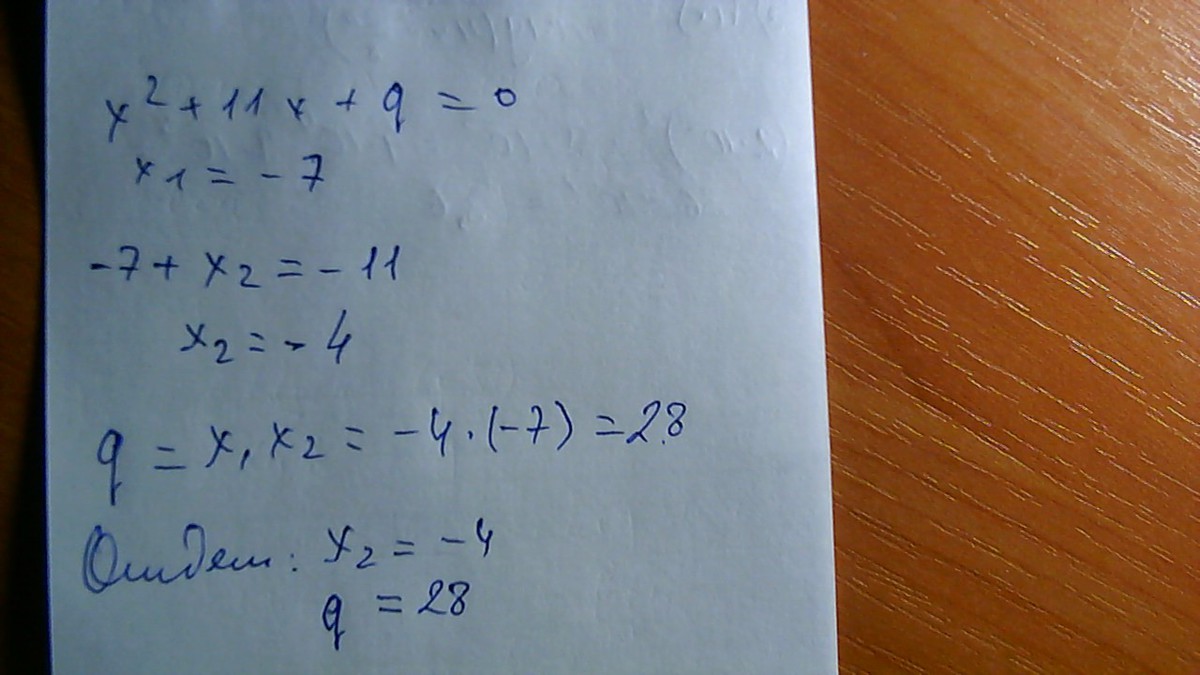 x² + 11x + q = 0
x₁ = -7
-7 + x₂ = -11
x₂ = -4
q = x₁x₂ = -4·(-7) = 28
Ответ: x₂ = -4
q = 28